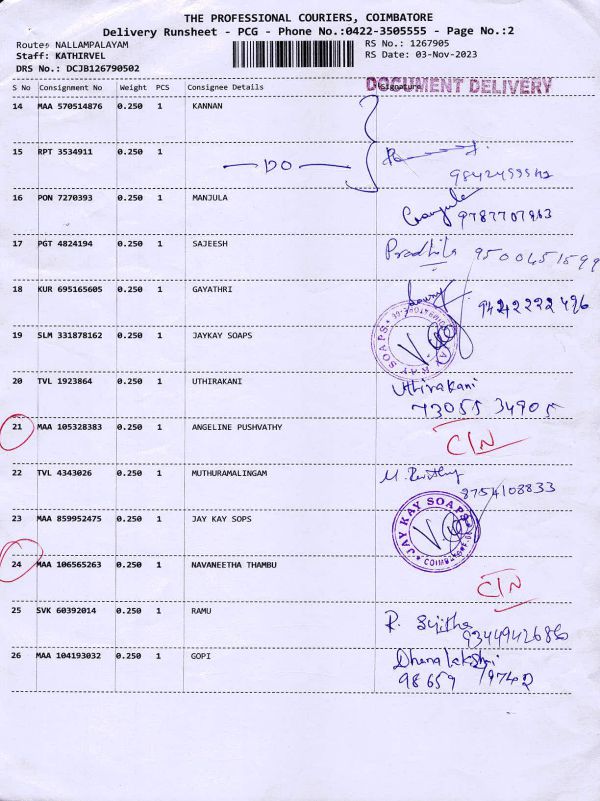 THE PROFESSIONAL COURIERS, COIMBATORE
Delivery Runsheet - PCG - Phone No.:0422-3505555 - Page No.:2
Route: NALLAMPALAYAM
Staff: KATHIRVEL
DRS No.: DCJB126790502
RS No.: 1267905
RS Date: 03-Nov-2023
DOCUMENT DELIVERY
S No Consignment No Weight PCS Consignee Details Signature
14 MAA 570514876 0.250 1 KANNAN
15 RPT 3534911 0.250 1 — DO —
16 PON 7270393 0.250 1 MANJULA
9787707963
17 PGT 4824194 0.250 1 SAJEESH
9500451599
18 KUR 695165605 0.250 1 GAYATHRI
9442222496
19 SLM 331878162 0.250 1 JAYKAY SOAPS
JAY KAY SOAPS
20 TVL 1923864 0.250 1 UTHIRAKANI Uthirakani
73055 34905
21 MAA 105328383 0.250 1 ANGELINE PUSHVATHY CIN
22 TVL 4343026 0.250 1 MUTHURAMALINGAM
8754108833
23 MAA 859952475 0.250 1 JAY KAY SOPS JAY KAY SOAPS
24 MAA 106565263 0.250 1 NAVANEETHA THAMBU CIN
25 SVK 60392014 0.250 1 RAMU R. Sujitha
9344942686
26 MAA 104193032 0.250 1 GOPI Dhanalakshmi
98659 19742